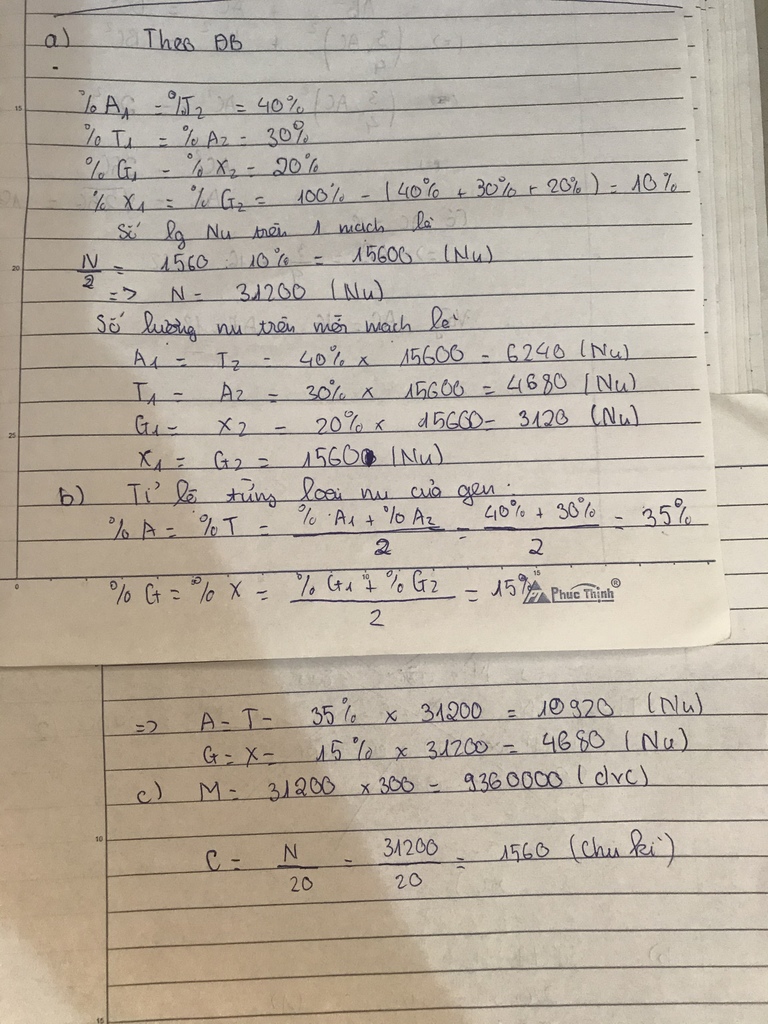 a) Theo ĐB
% A1 = %T2 = 40%
% T1 = % A2 = 30%
% G1 = % X2 = 20%
% X1 = % G2 = 100% - (40% + 30% + 20%) = 10%
Số lg Nu trên 1 mạch là
N/2 = 1560 : 10% = 15600 (Nu)
=> N = 31200 (Nu)
Số lượng nu trên mỗi mạch là
A1 = T2 = 40% x 15600 = 6240 (Nu)
T1 = A2 = 30% x 15600 = 4680 (Nu)
G1 = X2 = 20% x 15600 = 3120 (Nu)
X1 = G2 = 1560 (Nu)
b) Tỉ lệ từng loại nu của gen:
% A = % T = (% A1 + % A2)/2 = (40% + 30%)/2 = 35%
% G = % X = (% G1 + % G2)/2 = 15%
Phuc Thinh®
=> A = T = 35% x 31200 = 10920 (Nu)
G = X = 15% x 31200 = 4680 (Nu)
c) M = 31200 x 300 = 9360000 (đvc)
C = N/20 = 31200/20 = 1560 (Chu kì)